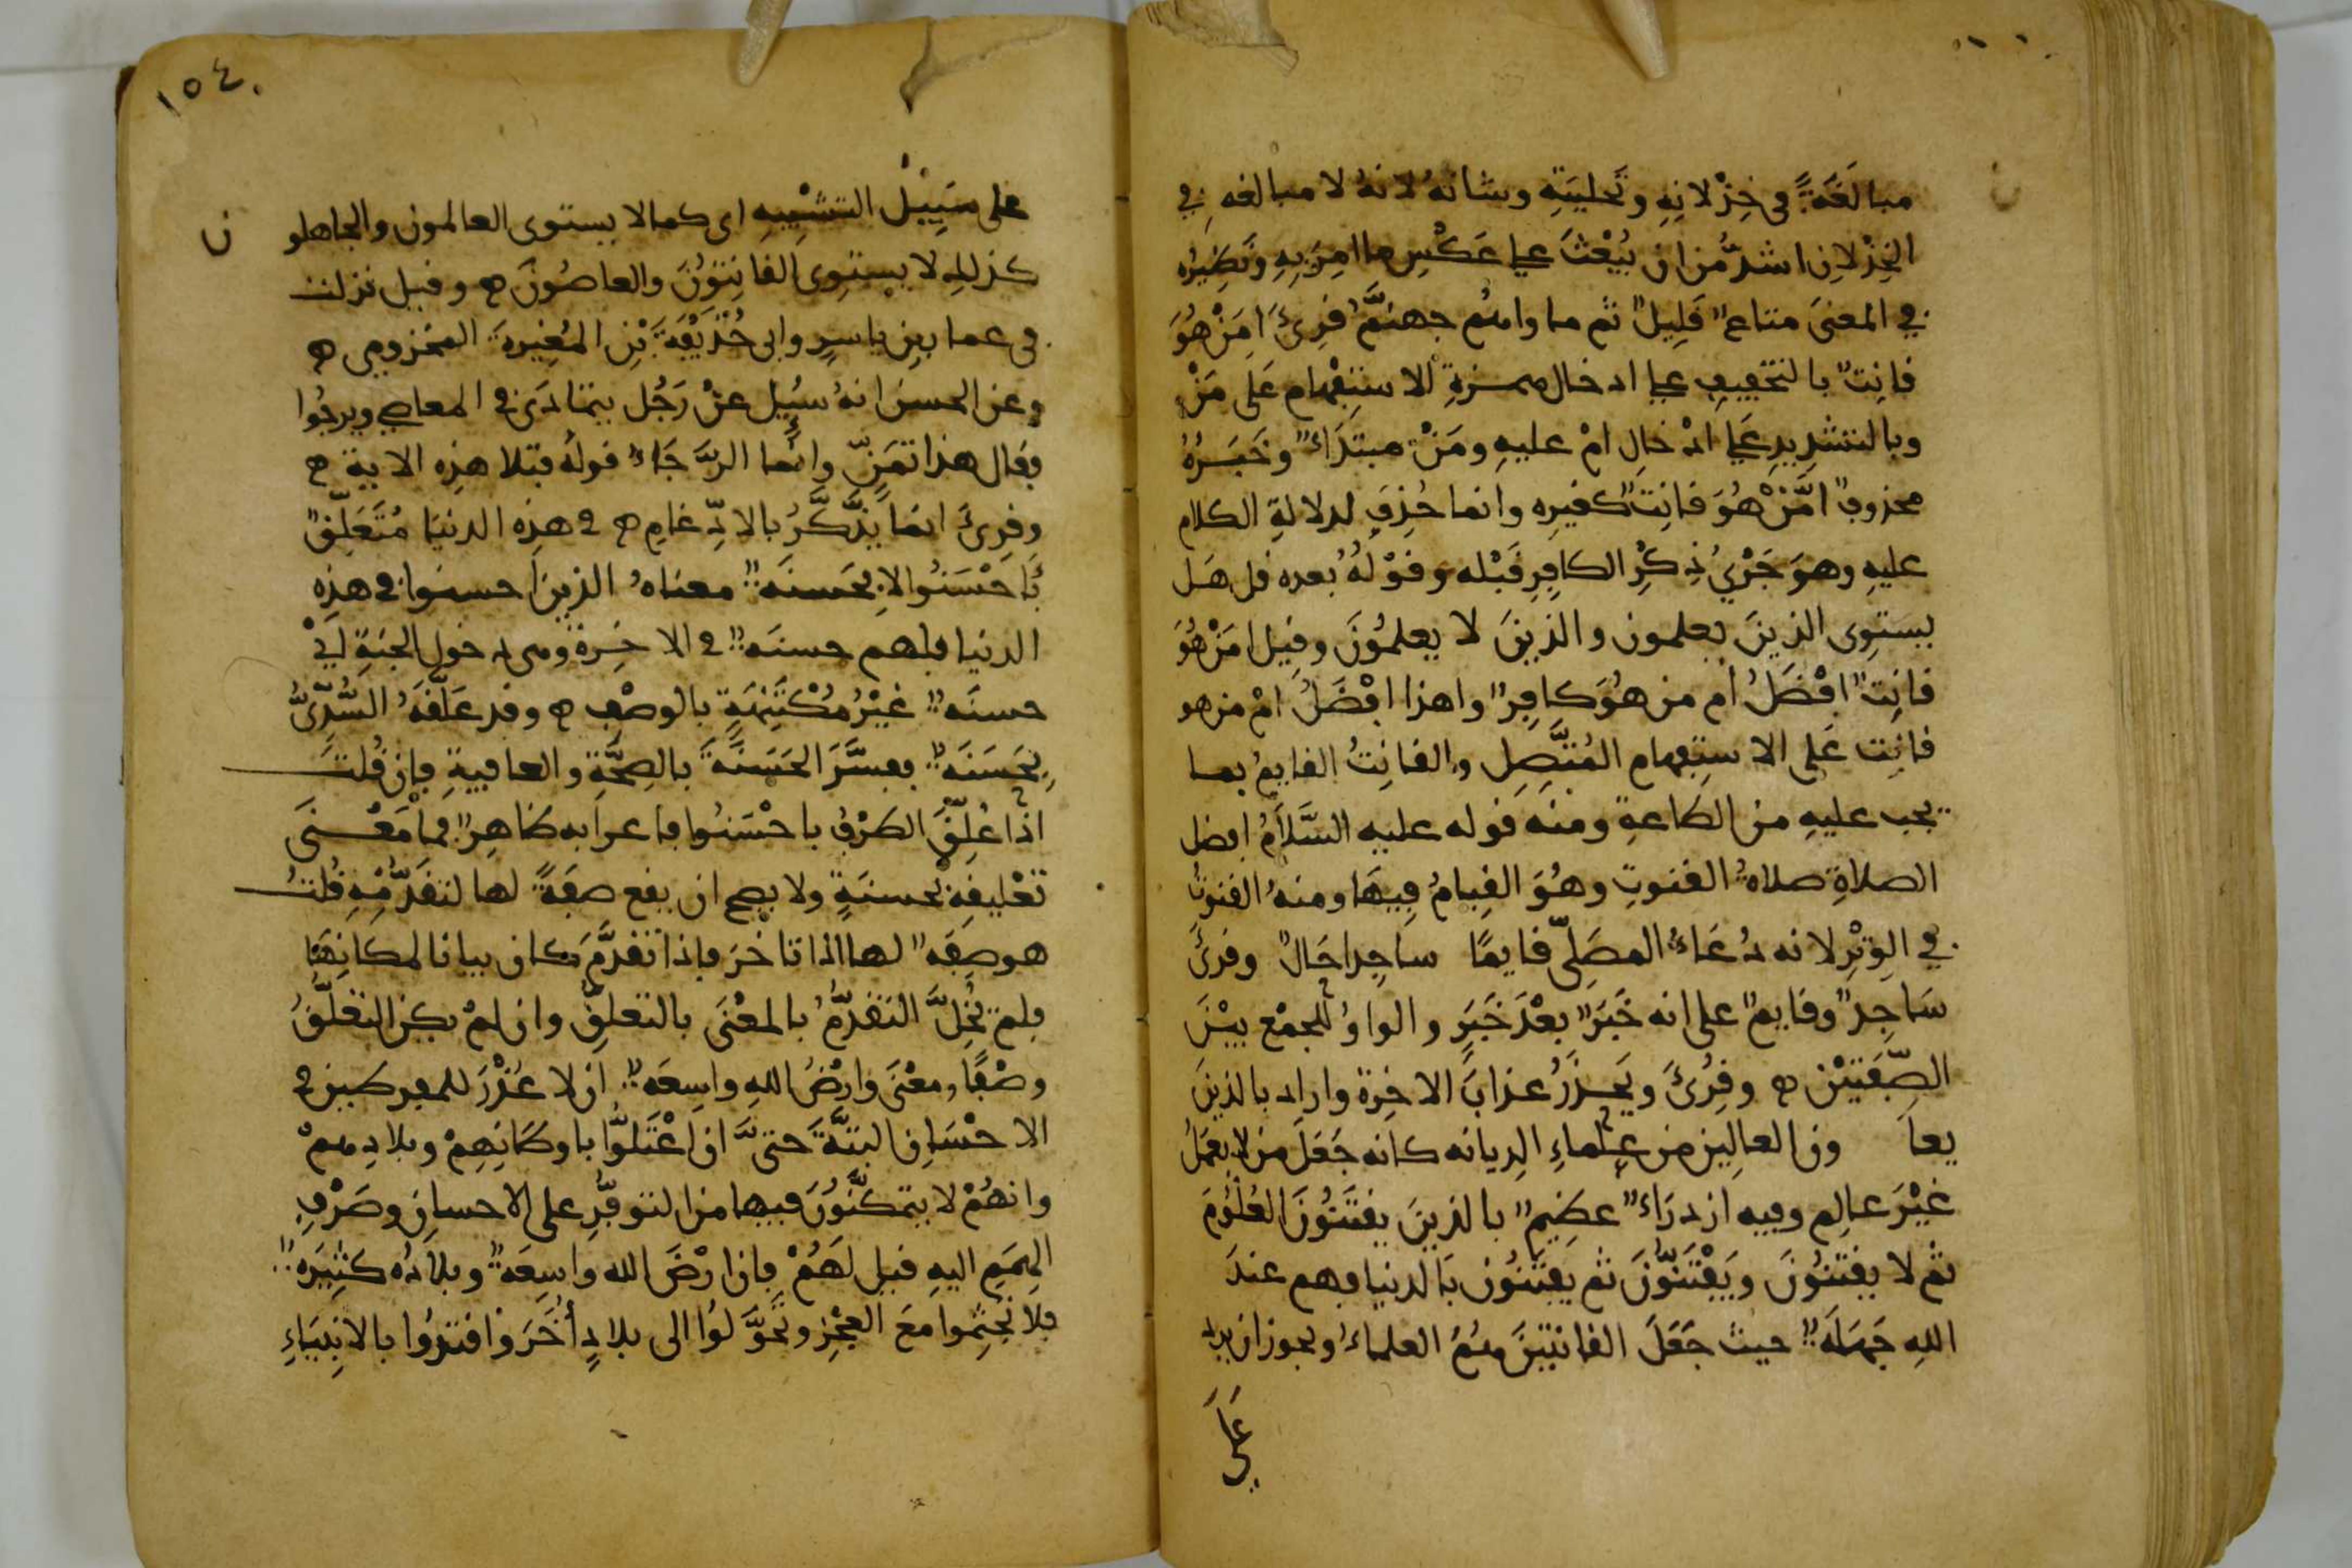 مبالَغَةً في خِذْلانِهِ وتَخْليَتِهِ وشانهُ لانهُ لا مبالغه في
الخِذْلانِ اشدُّ من ان يُبْعَثَ على عَكْسِ ما امِرَ بهِ ونَظِيرُه
في المعنَى متاعٌ قَلِيلٌ ثم ماواهُم جهنَّمُ قرِئَ امَنْ هُوَ
قانِتٌ بالتخفيفِ على ادخال همزةِ الاستِفْهام عَلى مَنْ
وبالتشدِيدِ عَلى ادْخالِ امْ عليهِ ومَنْ مبتدَاءٌ وخَبَرُهُ
محذوفٌ امَّنْ هُوَ قانِتٌ كغيرِه وانما حُذِفَ لدلالةِ الكلام
عليهِ وهوَ جَرْيُ ذِكْرِ الكافِرِ قَبْله وقوْلُهُ بعده قل هَل
يستوِى الذينَ يعلمون والذينَ لا يعلمُونَ وقِيل امَنْ هُوَ
قانِتٌ افْضَلُ أم من هُوَ كافِرٌ واهذا افْضَلُ امْ من هو
قانِت عَلى الاستِفهام المُتَّصِلِ والقانِتُ القايمُ بما
يجب عليهِ من الطاعةِ ومنه قوله عليه السَّلَامُ افضل
الصلاةِ صلاةُ القنوتِ وهُوَ القِيامُ فِيهَا ومنهُ القنوتُ
في الوِتْرِ لانه دُعَاءُ المصَلِّى قايمًا ساجِدا حَالٌ وقرئَ
سَاجِدٌ وقايمٌ على انه خَبَرٌ بعْدَ خَبَرٍ والواوُ للجمْع بيْنَ
الصِّفَتيْن ه وقِرُئَ ويَحذَرُ عذابَ الاخِرة واراد بالذينَ
يعلمون العالِمِين من عُلماءِ الدِيانه كانه جَعَلَ من لا يعْمَلُ
غيْرَ عالِم وفيه ازدرَاءٌ عظِيمٌ بالذينَ يقتَنُونَ العُلُومَ
ثم لا يقنتُونَ ويَفْتَنُّونَ ثم يفتَنُون بَالدنيا فهم عندَ
اللهِ جَهَلَةٌ حيث جَعَلَ القانتينَ هُمُ العلماءُ ويجوز ان يراد
عَلَى
١٥٤
على سَبِيلِ التشْبِيهِ اى كما لا يستوى العالمون والجاهلو
ن
كذلك لا يستوِى القانِتونَ والعاصُونَ ه وقيل نزلت
فى عمار بنِ ياسرٍ وابى حُذيْفَةَ بْنِ المُغِيرةَ المخزومى ه
وعن الحسن انهُ سُيِل عنْ رَجُل يتمادَى في المعاصي ويرجُوا
فقال هذا تمَنٍّ وانما الرَّجَاءُ قولهُ فتلا هذِه الاية ه
وقِرِئَ انمَا يذَّكَّرُ بالادِّغامِ ه في هذِه الدنيا مُتَعَلِّقٌ
بَاحْسَنُوا لا بحَسنَةٌ معناهُ الذينَ احسنوا في هذِهِ
الدنيا فلهم حسنَةٌ في الاخِرة وهى دخول الجنةِ اىْ
حسنَةٌ غيْرُ مُكْتَنِهَةٍ بالوصْفِ ه وقد علَّقَهُ السُّدِّىُّ
بِحَسَنَةٌ ففسَّرَ الحَسَنَةَ بالصِحَّةِ والعافيةِ فإن قُلتَ
اذا عُلِّقَ الظرْفُ باحْسَنُوا فاعرابه ظاهِرٌ فما مَعْنَى
تعْليقِهِ بحسنةٍ ولا يصح ان يقع صِفَةً لها لتقدُّمِهِ قُلتُ
هو صِفَةٌ لها اذا تاخرَ فإذا تقدَّمَ كان بيانا لمكانِهَا
فلم يُخِلَّ التقدُّمُ بالمعْنَى بالتعلقِ وان لمْ يكن التعلُّقُ
وصْفًا ومعْنَى وارْضُ اللهِ واسِعَةٌ ان لا عُذْرَ للمفرطين في
الاحْسَانِ البتَّةَ حتى ان اعْتَلُّوا باوطَانِهِمْ وبلادِهِمْ
وانهُمْ لا يتمكَّنُونَ فيها من التوفُّرِ على الاحسانِ وصَرْفِ
الهِمَمِ اليهِ قيل لَهُمْ فإن ارْضَ الله واسِعَةٌ وبلادُه كثِيرَةٌ
فلا تَجثِمُوا معَ العجْزِ وتَحَوَّلُوا الى بلادٍ أُخَرَ واقتدُوا بالانبيَاءِ